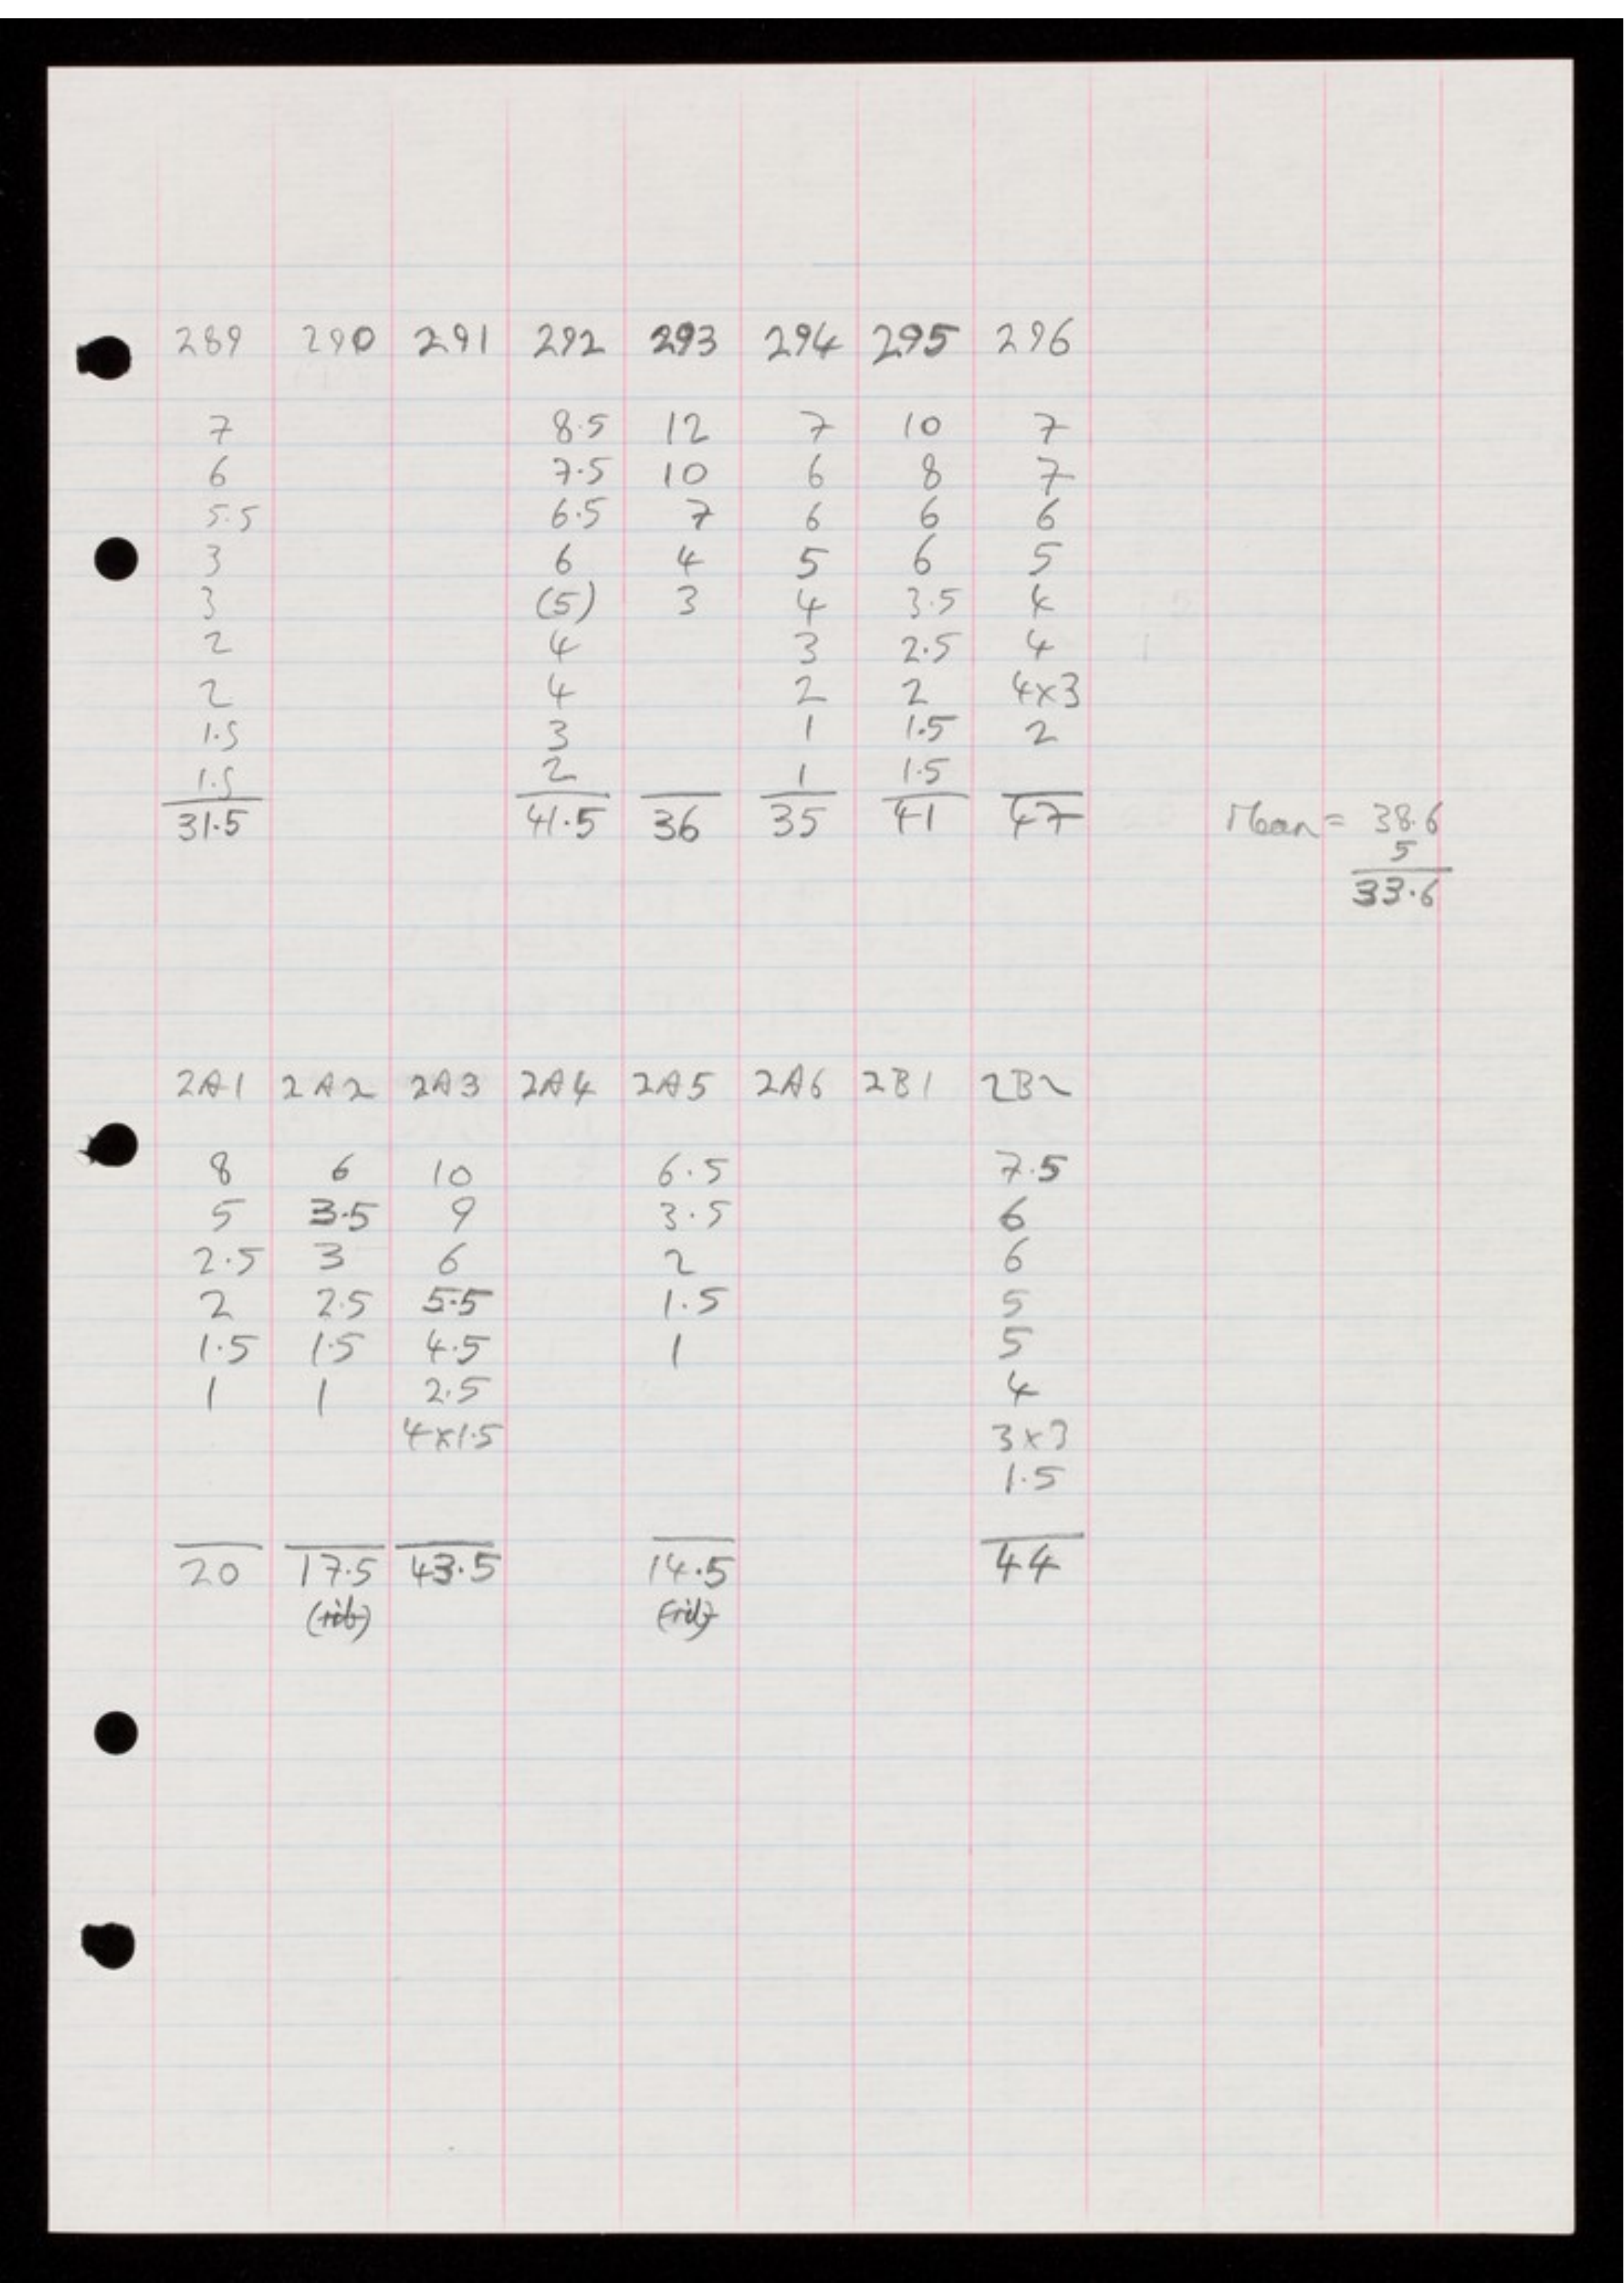 289 290 291 292 293 294 295 296
7 8.5 12 7 10 7
6 7.5 10 6 8 7
5.5 6.5 7 6 6 6
3 6 4 5 6 5
3 (5) 3 4 3.5 4
2 4 3 2.5 4
2 4 2 2 4x3
1.5 3 1 1.5 2
1.5 2 1 1.5
31.5 41.5 36 35 41 47 Mean = 38.6
5
33.6
2A1 2A2 2A3 2A4 2A5 2A6 2B1 2B2
8 6 10 6.5 7.5
5 3.5 9 3.5 6
2.5 3 6 2 6
2 2.5 5.5 1.5 5
1.5 1.5 4.5 1 5
1 1 2.5 4
4x1.5 3x3
1.5
20 17.5 43.5 14.5 44
(rib) (rib)